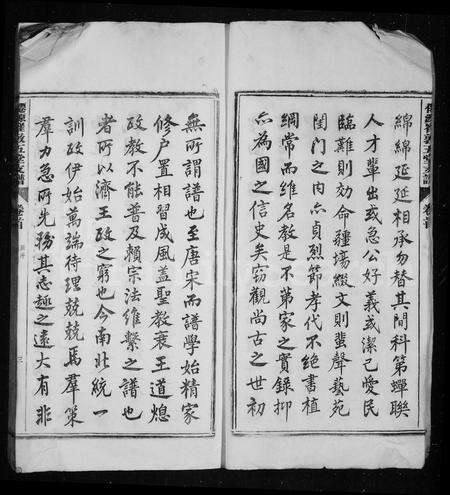 綿綿延延相承勿替其間科第蟬聯
人才輩出或急公好義或潔己愛民
臨難則効命疆埸綴文則蜚聲藝苑
閨門之內亦貞烈節孝代不絕書植
綱常而維名教是不第家之實錄抑
亦為國之信史矣窃觀尚古之世初
無所謂譜也至唐宋而譜學始精家
修户置相習成風盖聖教衰王道熄
政教不能普及賴宗法維繫之譜也
者所以濟王政之窮也今南北統一
訓政伊始萬端待理兢兢焉羣策
羣力急所先務其志趣之遠大有非